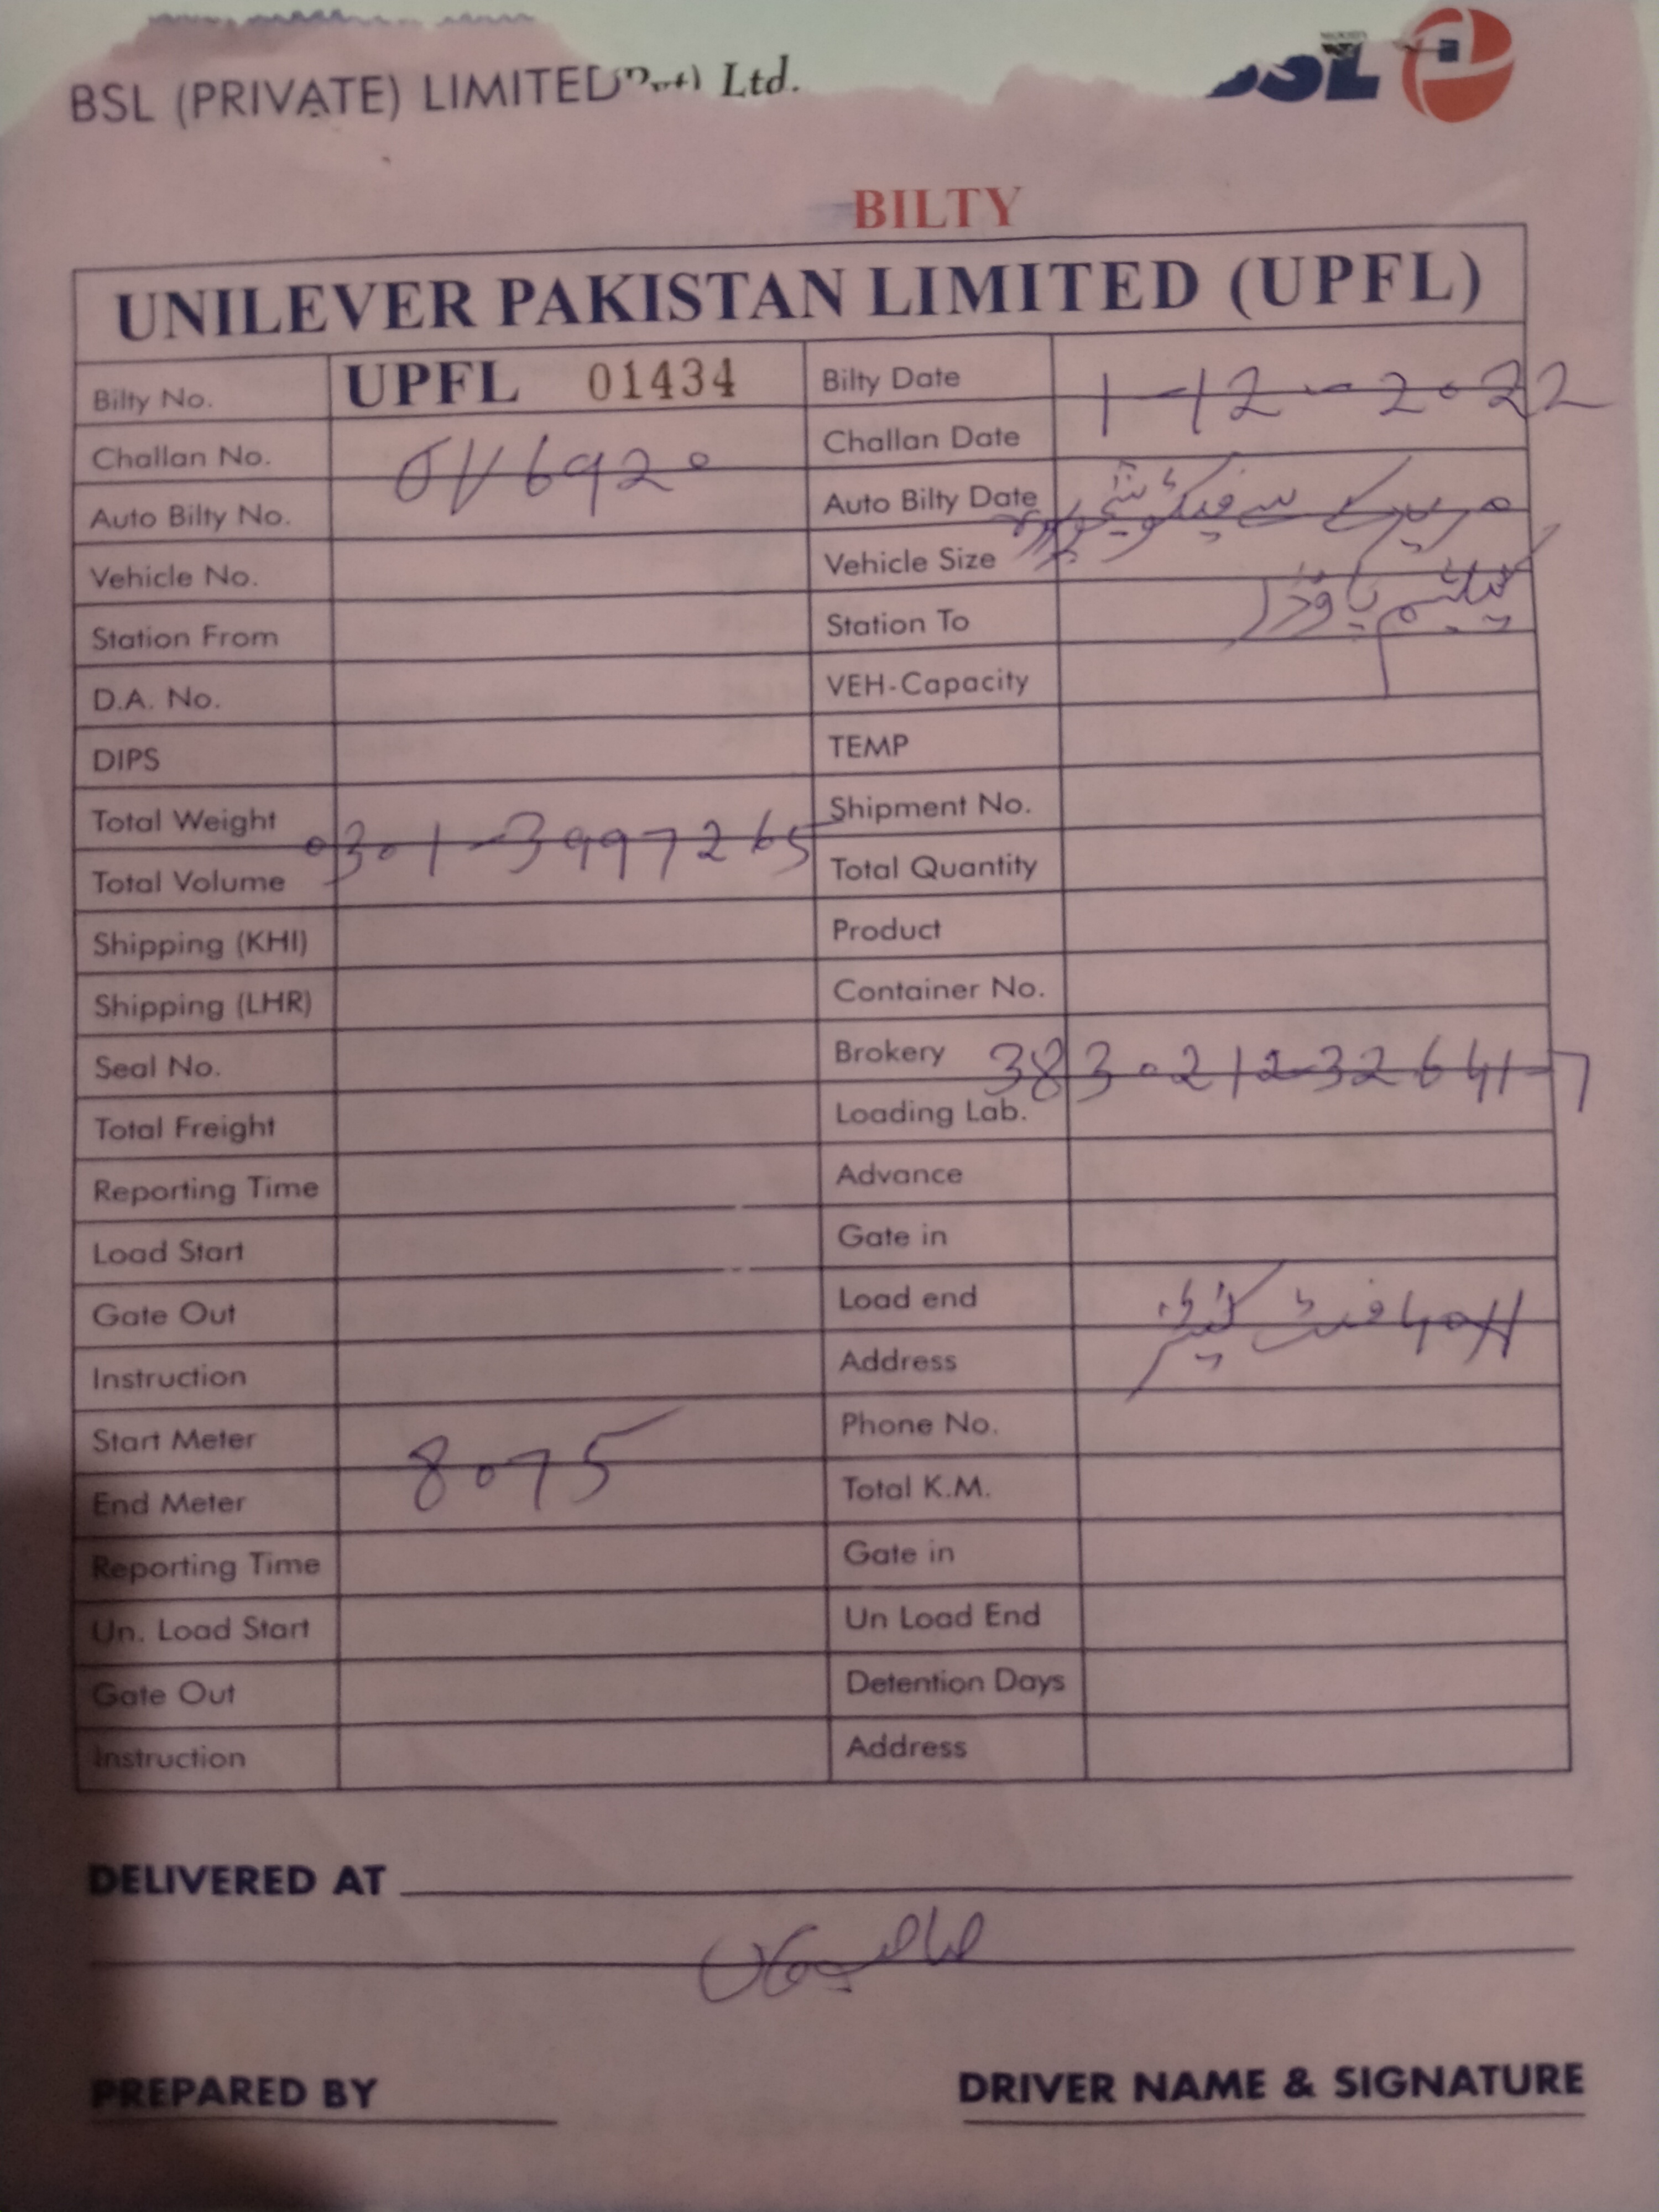 BSL (PRIVATE) LIMITED Ltd.
BSL
BILTY
UNILEVER PAKISTAN LIMITED (UPFL)
Bilty No. UPFL 01434 Bilty Date 1-12-2022
Challan No. Challan Date
6920
Auto Bilty No. Auto Bilty Date
Vehicle No. Vehicle Size
پاوڈر
Station From Station To
D.A. No. VEH-Capacity
DIPS TEMP
Total Weight Shipment No.
0301-3997265
Total Volume Total Quantity
Shipping (KHI) Product
Shipping (LHR) Container No.
Seal No. Brokery
38
Total Freight Loading Lab.
Reporting Time Advance
Load Start Gate in
Gate Out Load end
فٹ کنٹینر
Instruction Address
Start Meter Phone No.
8075
End Meter Total K.M.
Reporting Time Gate in
Un. Load Start Un Load End
Gate Out Detention Days
Instruction Address
DELIVERED AT
PREPARED BY DRIVER NAME & SIGNATURE